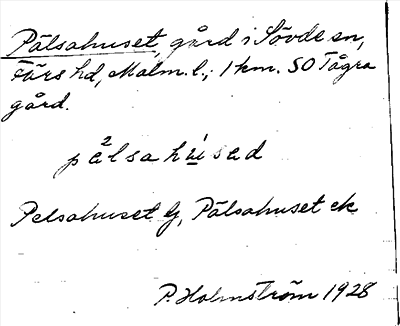 Pälsahuset, gård i Sövde sn,
Färs hd, Malm. l.; 1 km. SO Tågra
gård.
pälsahu̱sad
Pelsahuset Gj, Pälsahuset ek
P. Holmström 1928